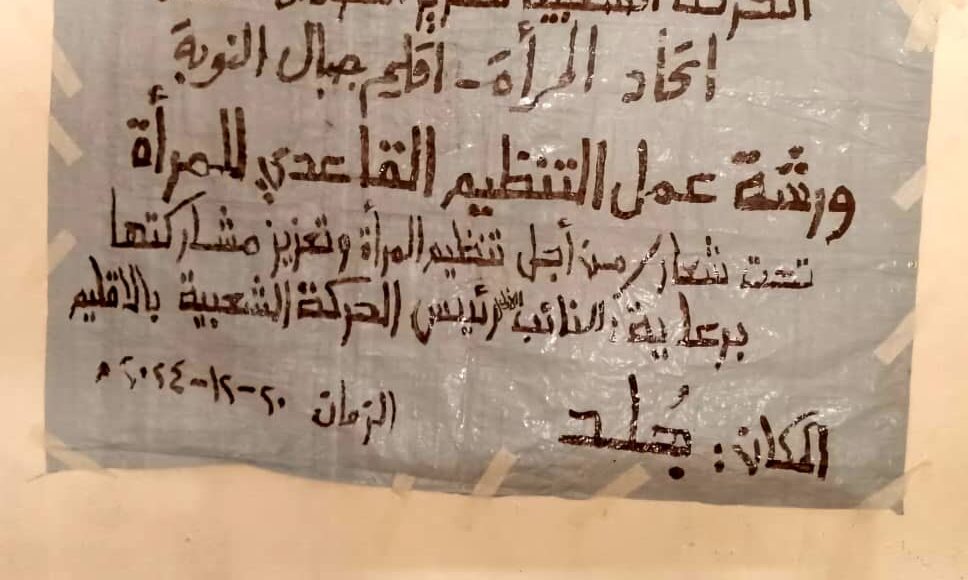 الحركة الشعبية لتحرير
اتحاد المرأة - اقليم جبال النوبة
ورشة عمل التنظيم القاعدي للمرأة
تحت شعار / من أجل تنظيم المرأة وتعزيز مشاركتها
برعاية : النائب رئيس الحركة الشعبية بالاقليم
المكان : جُلد
الزمان ٢٠-١٢-٢٠٢٤م